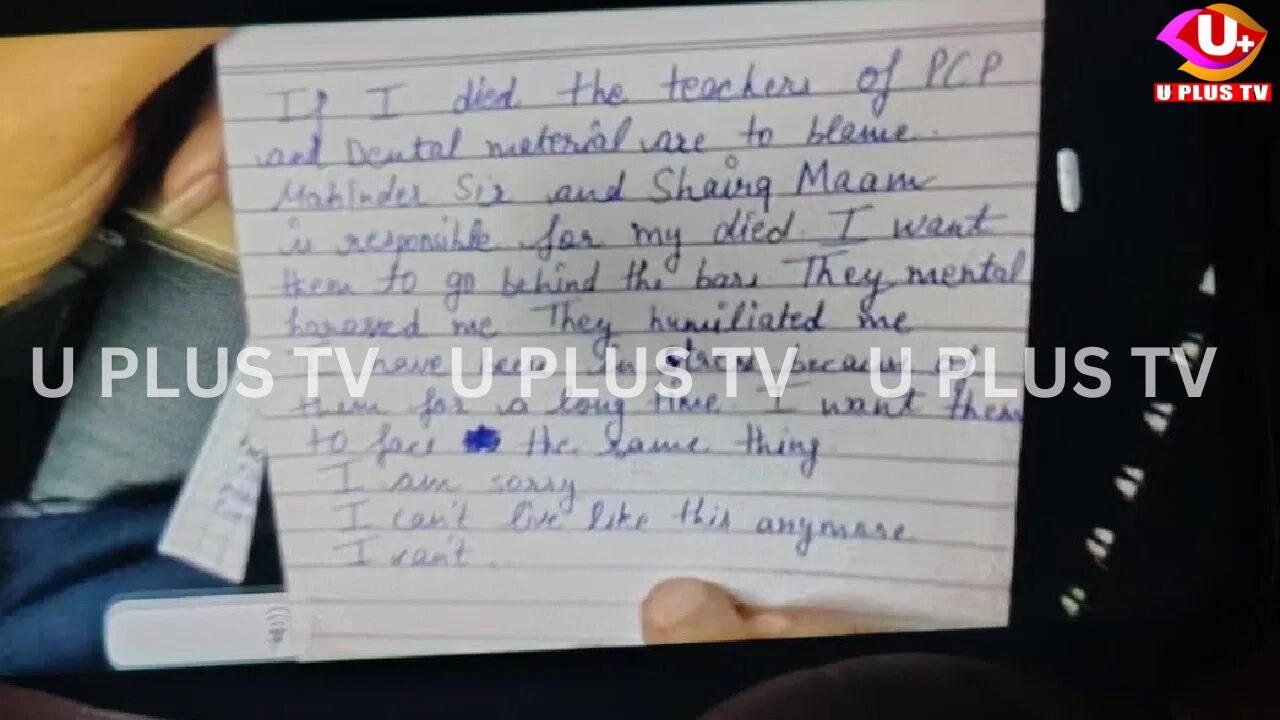 U+
U PLUS TV
If I died the teachers of PCP
and Dental material are to blame.
Mahinder Sir and Shairg Maam
is responsible for my died. I want
them to go behind the bars They mental
harassed me They humiliated me
U PLUS TV U PLUS TV U PLUS TV
I have been in stress because of
them for a long time I want them
to face the same thing
I am sorry
I can't live like this anymore
I can't ..